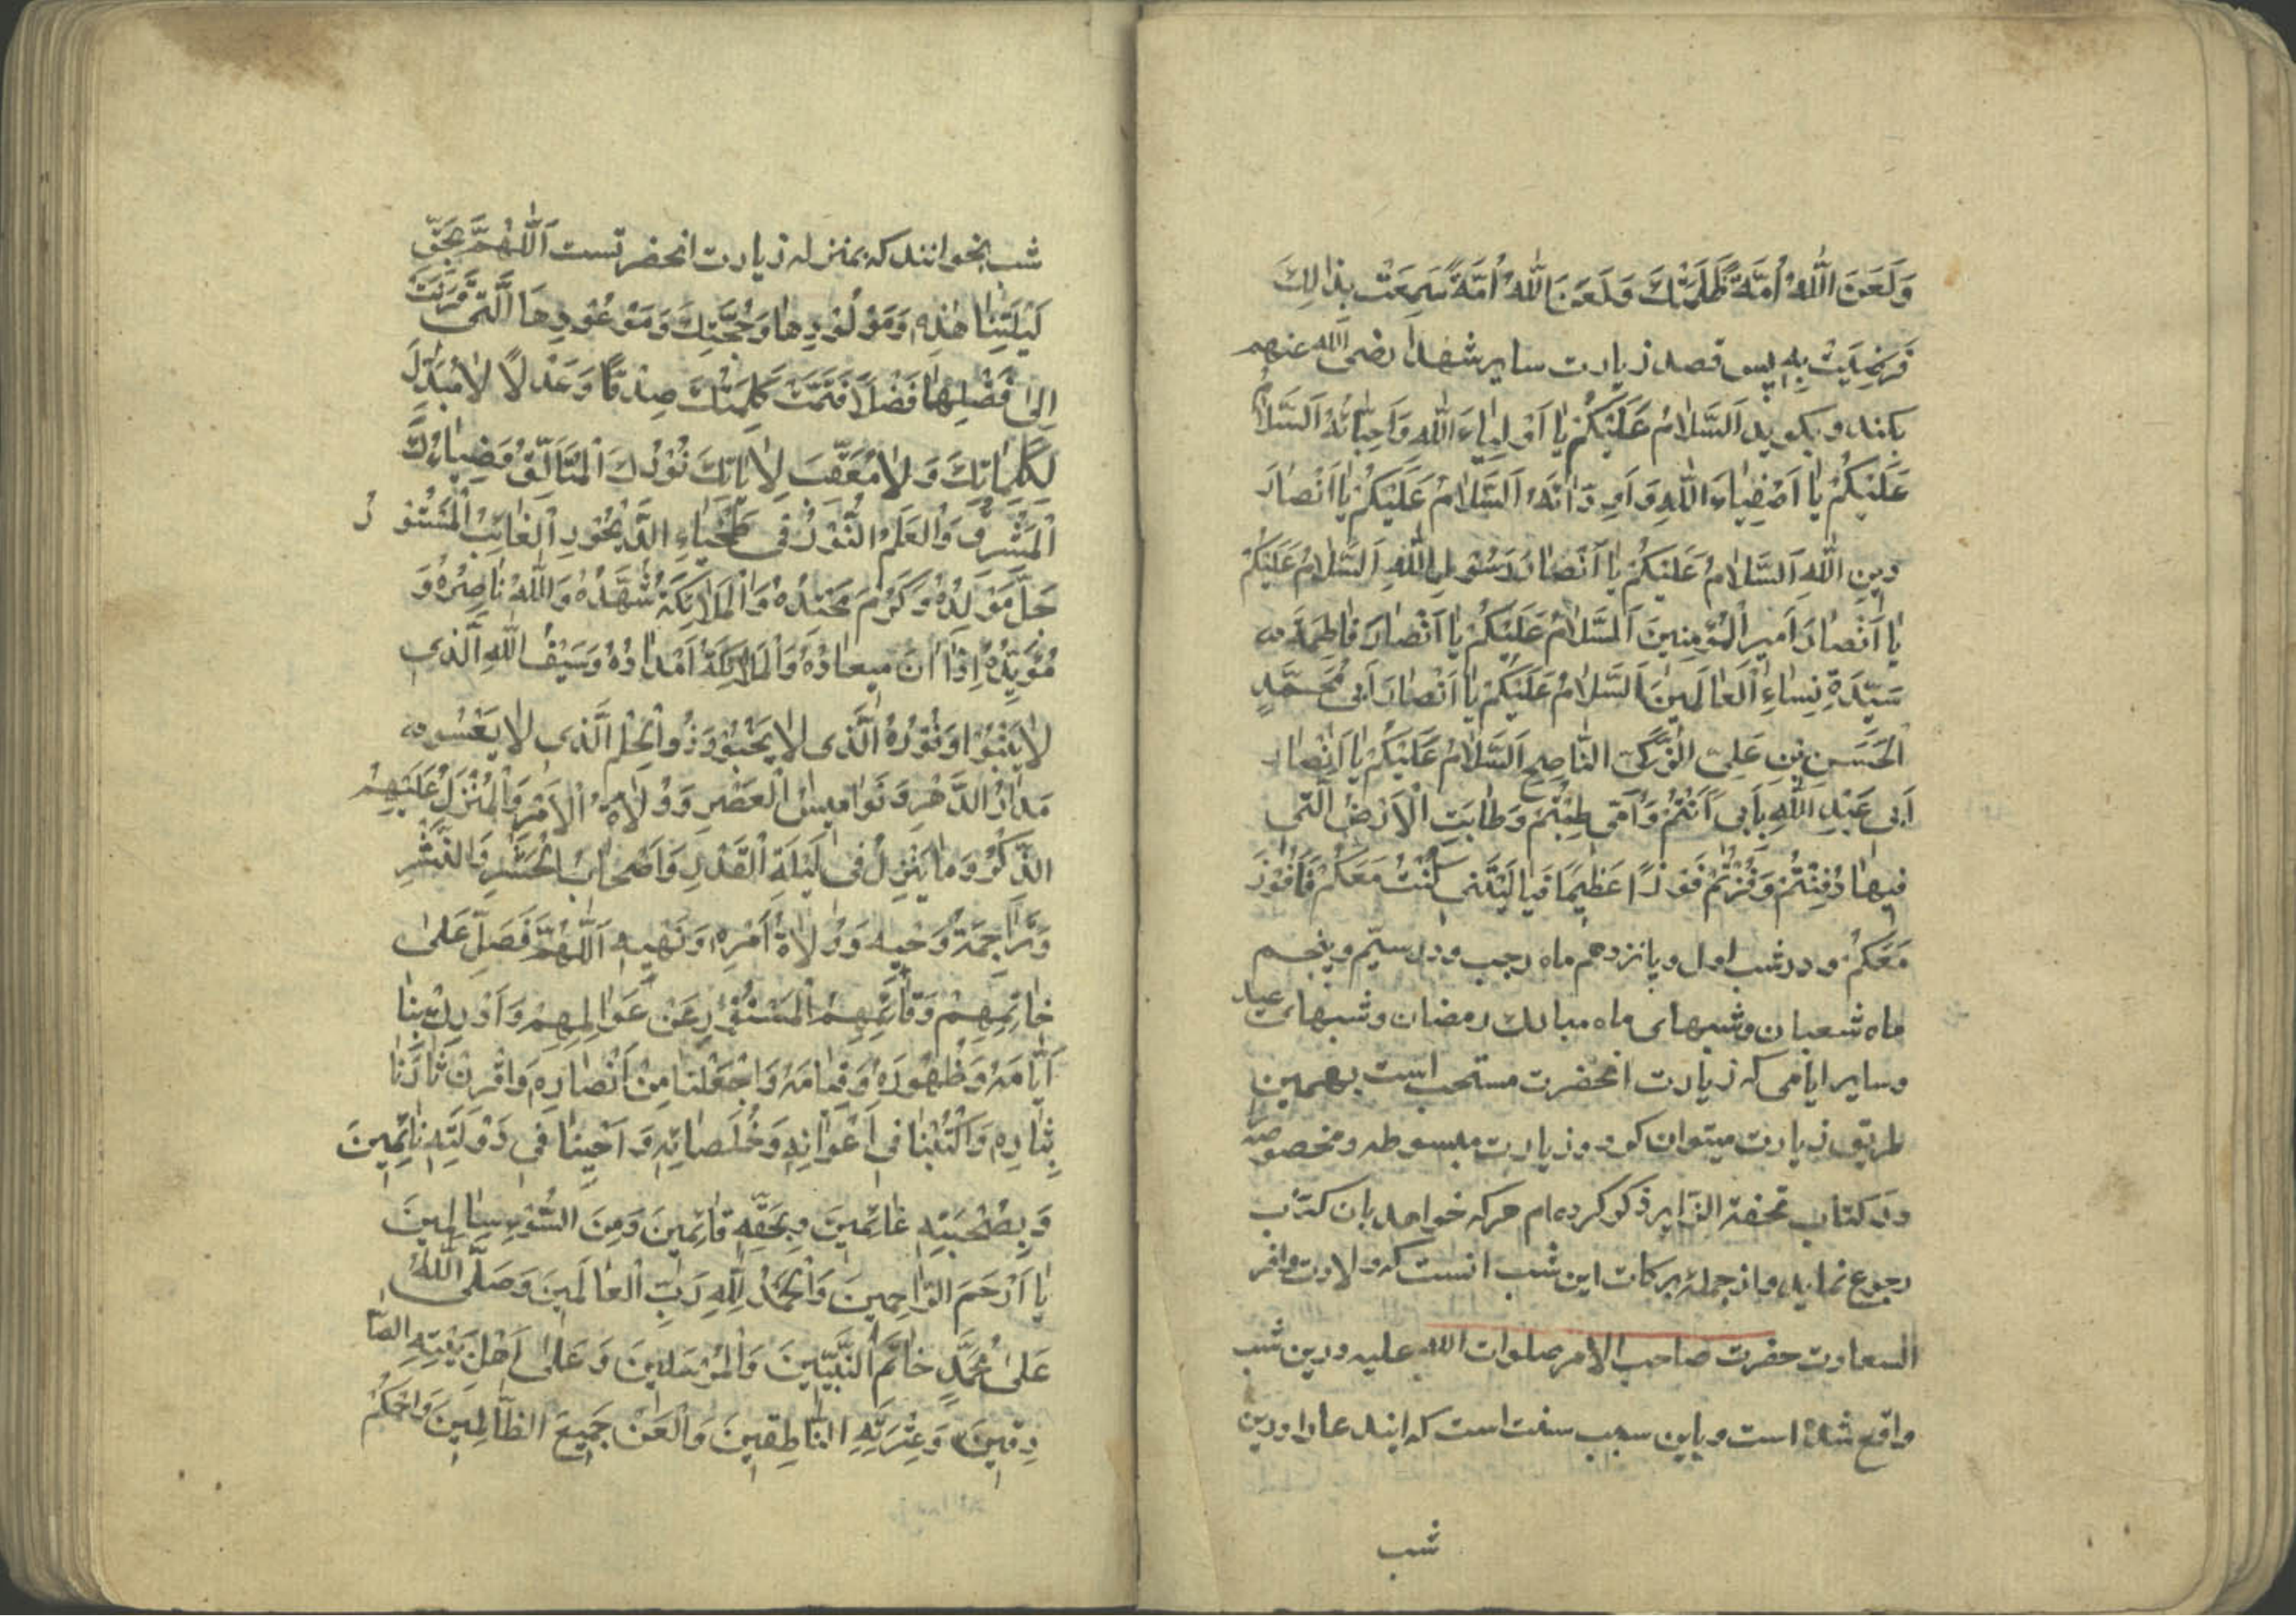 وَلَعَنَ اللّٰهُ اُمَّةً ظَلَمَتْكَ وَلَعَنَ اللّٰهُ اُمَّةً سَمِعَتْ بِذٰلِكَ
فَرَضِيَتْ بِهِ پس قصد زیارت سایر شهدا رضی الله عنهم
بکند و بکوید اَلسَّلامُ عَلَيْكُمْ يا اَوْلِياءَ اللّٰهِ وَاَحِبّائَهُ اَلسَّلامُ
عَلَيْكُمْ يا اَصْفِياءَ اللّٰهِ وَاَوِدّائَهُ اَلسَّلامُ عَلَيْكُمْ يا اَنْصارَ
دينِ اللّٰهِ اَلسَّلامُ عَلَيْكُمْ يا اَنْصارَ رَسُولِ اللّٰهِ اَلسَّلامُ عَلَيْكُمْ
يا اَنْصارَ اَميرِ الْمُؤْمِنينَ اَلسَّلامُ عَلَيْكُمْ يا اَنْصارَ فاطِمَةَ
سَيِّدَةِ نِساءِ الْعالَمينَ اَلسَّلامُ عَلَيْكُمْ يا اَنْصارَ اَبي مُحَمَّدٍ
الْحَسَنِ بْنِ عَلِيٍّ الزَّكِيِّ النّاصِحِ اَلسَّلامُ عَلَيْكُمْ يا اَنْصارَ
اَبي عَبْدِ اللّٰهِ بِاَبي اَنْتُمْ وَاُمّي طِبْتُمْ وَطابَتِ الْاَرْضُ الَّتي
فيها دُفِنْتُمْ وَفُزْتُمْ فَوْزًا عَظيمًا فَيا لَيْتَني كُنْتُ مَعَكُمْ فَاَفُوزَ
مَعَكُمْ و در شب اول و پانزدهم ماه رجب و در سیّم و پنجم
ماه شعبان و شبهای ماه مبارک رمضان و شبهای عید
و سایر ایامی که زیارت انحضرت مستحب است بهمین
طریق زیارت میتوان کرد و زیارت مبسوطه و مخصوصه را
در کتاب تحفة الزایر ذکر کرده ام هر که خواهد بان کتاب
رجوع نماید و از جمله برکات این شب انست که ولادت وافر
السعادت حضرت صاحب الامر صلوات الله علیه در این شب
واقع شده است و باین سبب سنت است که ایندعا را در این
شب
شب بخوانند که بمنزله زیارت انحضرتست اَللّٰهُمَّ بِحَقِّ
لَيْلَتِنا هٰذِهِ وَمَوْلُودِها وَحُجَّتِكَ وَمَوْعُودِهَا الَّتي قَرَنْتَ
اِلىٰ فَضْلِها فَضْلًا فَتَمَّتْ كَلِمَتُكَ صِدْقًا وَعَدْلًا لا مُبَدِّلَ
لِكَلِماتِكَ وَلا مُعَقِّبَ لِاٰياتِكَ نُورُكَ الْمُتَاَلِّقُ وَضِياءُكَ
الْمُشْرِقُ وَالْعَلَمُ النُّورُ في طَخْياءِ الدَّيْجُورِ الْغائِبُ الْمَسْتُورُ
جَلَّ مَوْلِدُهُ وَكَرُمَ مَحْتِدُهُ وَالْمَلائِكَةُ شُهَّدُهُ وَاللّٰهُ ناصِرُهُ وَ
مُؤَيِّدُهُ اِذا اٰنَ ميعادُهُ وَالْمَلائِكَةُ اَمْدادُهُ وَسَيْفُ اللّٰهِ الَّذي
لا يَنْبُوا وَنُورُهُ الَّذي لا يَخْبُو وَذُو الْحِلْمِ الَّذي لا يَصْبُو
مَدارُ الدَّهْرِ وَنَواميسُ الْعَصْرِ وَوُلاةُ الْاَمْرِ وَالْمُنَزَّلُ عَلَيْهِمُ
الذِّكْرُ وَما يُنَزَّلُ في لَيْلَةِ الْقَدْرِ وَاَصْحابُ الْحَشْرِ وَالنَّشْرِ
وَتَراجِمَةُ وَحْيِهِ وَوُلاةُ اَمْرِهِ وَنَهْيِهِ اَللّٰهُمَّ فَصَلِّ عَلىٰ
خاتِمِهِمْ وَقائِمِهِمُ الْمَسْتُورِ عَنْ عَوالِمِهِمْ وَاَدْرِكْ بِنا
اَيّامَهُ وَظُهُورَهُ وَقِيامَهُ وَاجْعَلْنا مِنْ اَنْصارِهِ وَاقْرِنْ ثارَنا
بِثارِهِ وَاكْتُبْنا في اَعْوانِهِ وَخُلَصائِهِ وَاَحْيِنا في دَوْلَتِهِ ناعِمينَ
وَبِصُحْبَتِهِ غانِمينَ وَبِحَقِّهِ قائِمينَ وَمِنَ السُّوءِ سالِمينَ
يا اَرْحَمَ الرّاحِمينَ وَالْحَمْدُ لِلّٰهِ رَبِّ الْعالَمينَ وَصَلَّى اللّٰهُ
عَلىٰ مُحَمَّدٍ خاتَمِ النَّبِيّينَ وَالْمُرْسَلينَ وَعَلىٰ اَهْلِ بَيْتِهِ الصّا
دِقينَ وَعِتْرَتِهِ النّاطِقينَ وَالْعَنْ جَميعَ الظّالِمينَ وَاحْكُمْ